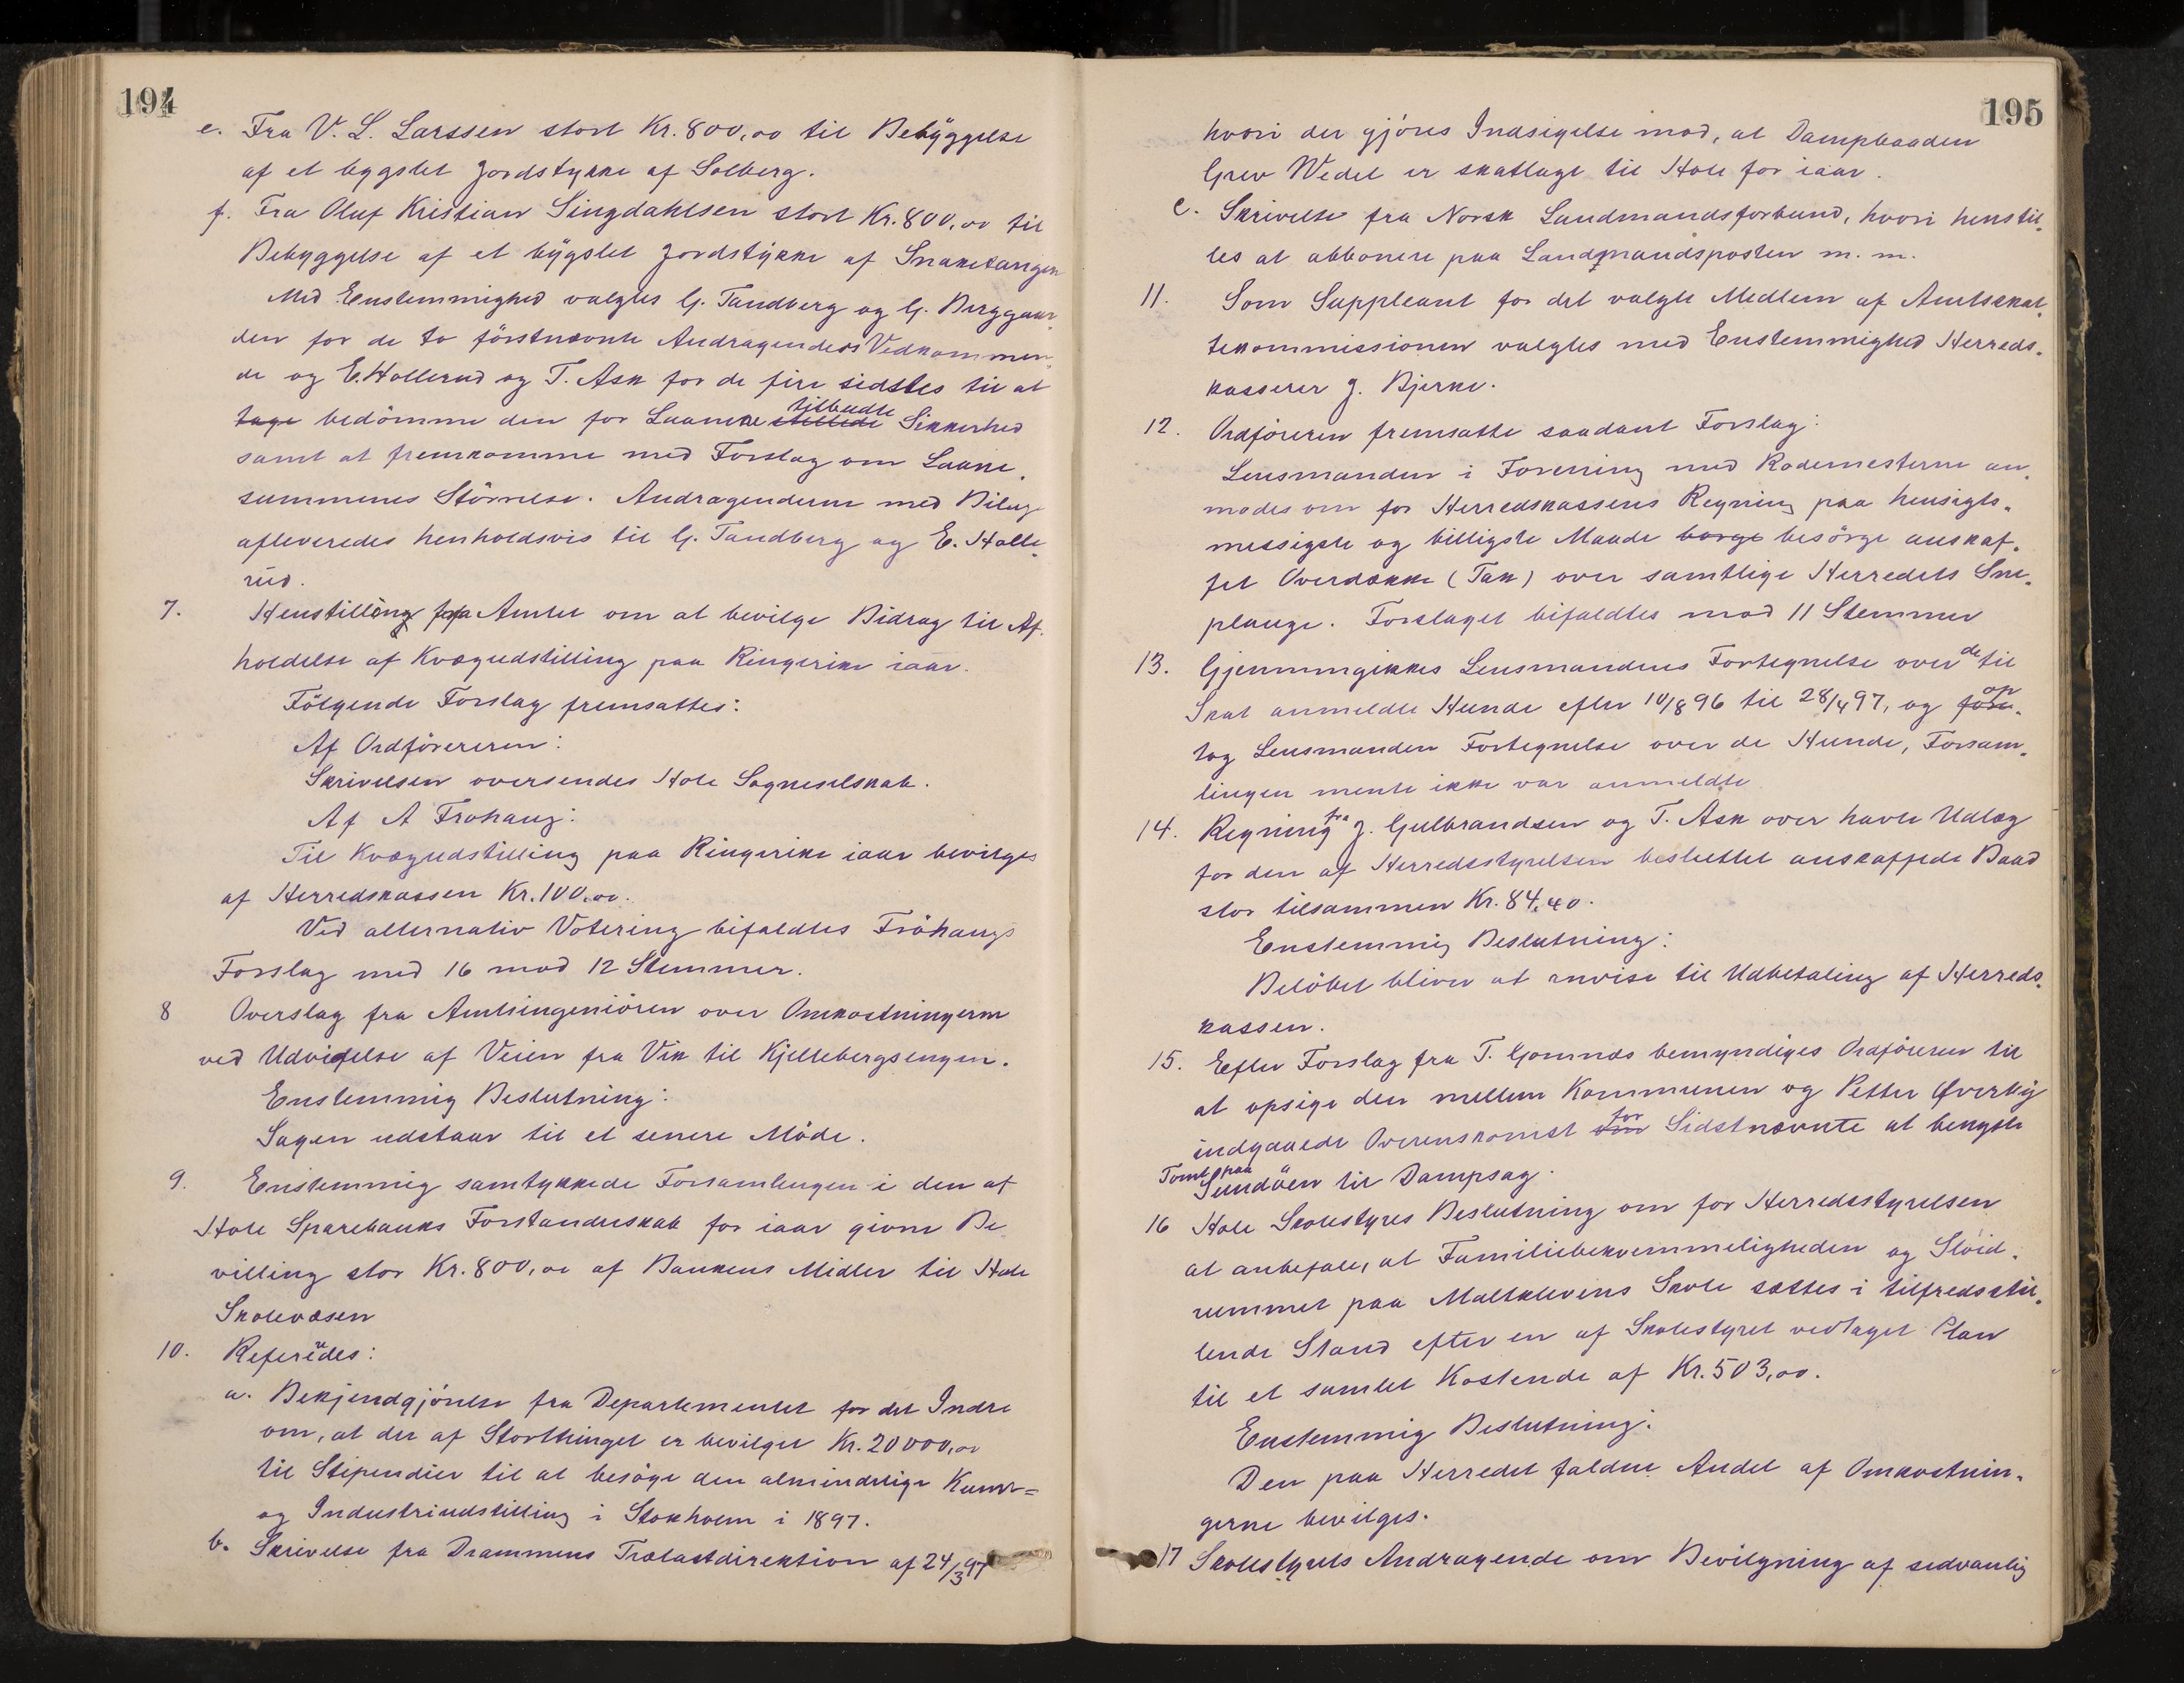 194
e. Fra V. L. Larssen stort Kr. 800,00 til Bebyggelse
af et bygslet Jordstykke af Solberg.
f. Fra Oluf Kristian Singdahlsen stort Kr. 800,00 til
Bebyggelse af et bygslet Jordstykke af Snaketangen
Med Enstemmighed valgtes G. Tandberg og G. Berggaar-
den for de to förstnævnte Andragenders Vedkommen-
de og E. Hollerud og T. Ask for de fire sidstes til at
tage bedömme den for Laanene stillede tilbudte Sikkerhed
samt at fremkomme med Forslag om Laane-
summenes Störrelse. Andragenderne med Bilag
afleveredes henholdsvis til G. Tandberg og E. Holle-
rud.
7. Henstilling fra Amtet om at bevilge Bidrag til Af-
holdelse af Kvægudstilling paa Ringerike iaar.
Fölgende Forslag fremsattes:
Af Ordförereren:
Skrivelsen oversendes Hole Sogneselskab.
Af A Frøhaug:
Til Kvægudstilling paa Ringerike iaar bevilges
af Herredskassen Kr. 100,00.
Ved alternativ Votering bifaldtes Fröhaugs
Forslag med 16 mod 12 Stemmer.
8 Overslag fra Amtsingeniören over Omkostningerne
ved Udvidelse af Veien fra Vik til Kjellebergsengen.
Enstemmig Beslutning:
Sagen udstaar til et senere Möde.
9. Enstemmig samtykkede Forsamlingen i den af
Hole Sparebanks Forstanderskab for iaar givne Be-
villing stor Kr. 800,00 af Bankens Midler til Hole
Skolevæsen
10. Refereredes:
a. Bekjendtgjörelse fra Departementet for det Indre
om, at der af Storthinget er bevilget Kr. 20000,00
til Stipendier til at besöge den almindelige Kunst=
og Industriudstilling i Stokholm i 1897.
b. Skrivelse fra Drammens Trælastdirektion af 24/3 97
195
hvori der gjöres Indsigelse mod, at Dampbaaden
Grev Wedel er skatlagt til Hole for iaar.
c. Skrivelse fra Norsk Landmandsforbund, hvori henstil-
les at abbonere paa Landmandsposten m. m.
11. Som Suppleant for det valgte Medlem af Amtsskat-
tekommissionen valgtes med Enstemmighed Herreds-
kasserer J. Bjerke.
12. Ordföreren fremsatte saadant Forslag:
Lensmanden i Forening med Rodemesterne an-
modes om for Herredskassens Regning paa hensigts-
messigste og billigste Maade borge besörge anskaf-
fet Overdække (Tak) over samtlige Herredets Sne-
plauge. Forslaget bifaldtes mod 11 Stemmer
13. Gjennemgikkes Lensmandens Fortegnelse over de til
Skat anmeldte Hunde efter 10/8 96 til 28/4 97, og fore- op
tog Lensmanden Fortegnelse over de Hunde, Forsam-
lingen mente ikke var anmeldte
14. Regning fra J. Gulbrandsen og T. Ask over havte Udlæg
for den af Herredsstyrelsen besluttet anskaffede Baad
stor tilsammen Kr. 84,40.
Enstemmig Beslutning:
Belöbet bliver at anvise til Udbetaling af Herreds-
kassen.
15. Efter Forslag fra T. Gomnæs bemyndiges Ordföreren til
at opsige den mellem Kommunen og Petter Øverby
indgaaede Overenskomst om for Sidstnævnte at benytte
Tomt paa Sundöen til Dampsag.
16 Hole Skolestyres Beslutning om for Herredsstyrelsen
at anbefale, at Familiebekvemmeligheden og Slöid-
rummet paa Maltklevens Skole sættes i tilfredsstil-
lende Stand efter en af Skolestyret vedtaget Plan
til et samlet Kostende af Kr. 503,00.
Enstemmig Beslutning:
Den paa Herredet faldne Andel af Omkostnin-
gerne bevilges.
17 Skolestyrets Andragende om Bevilgning af sedvanlig